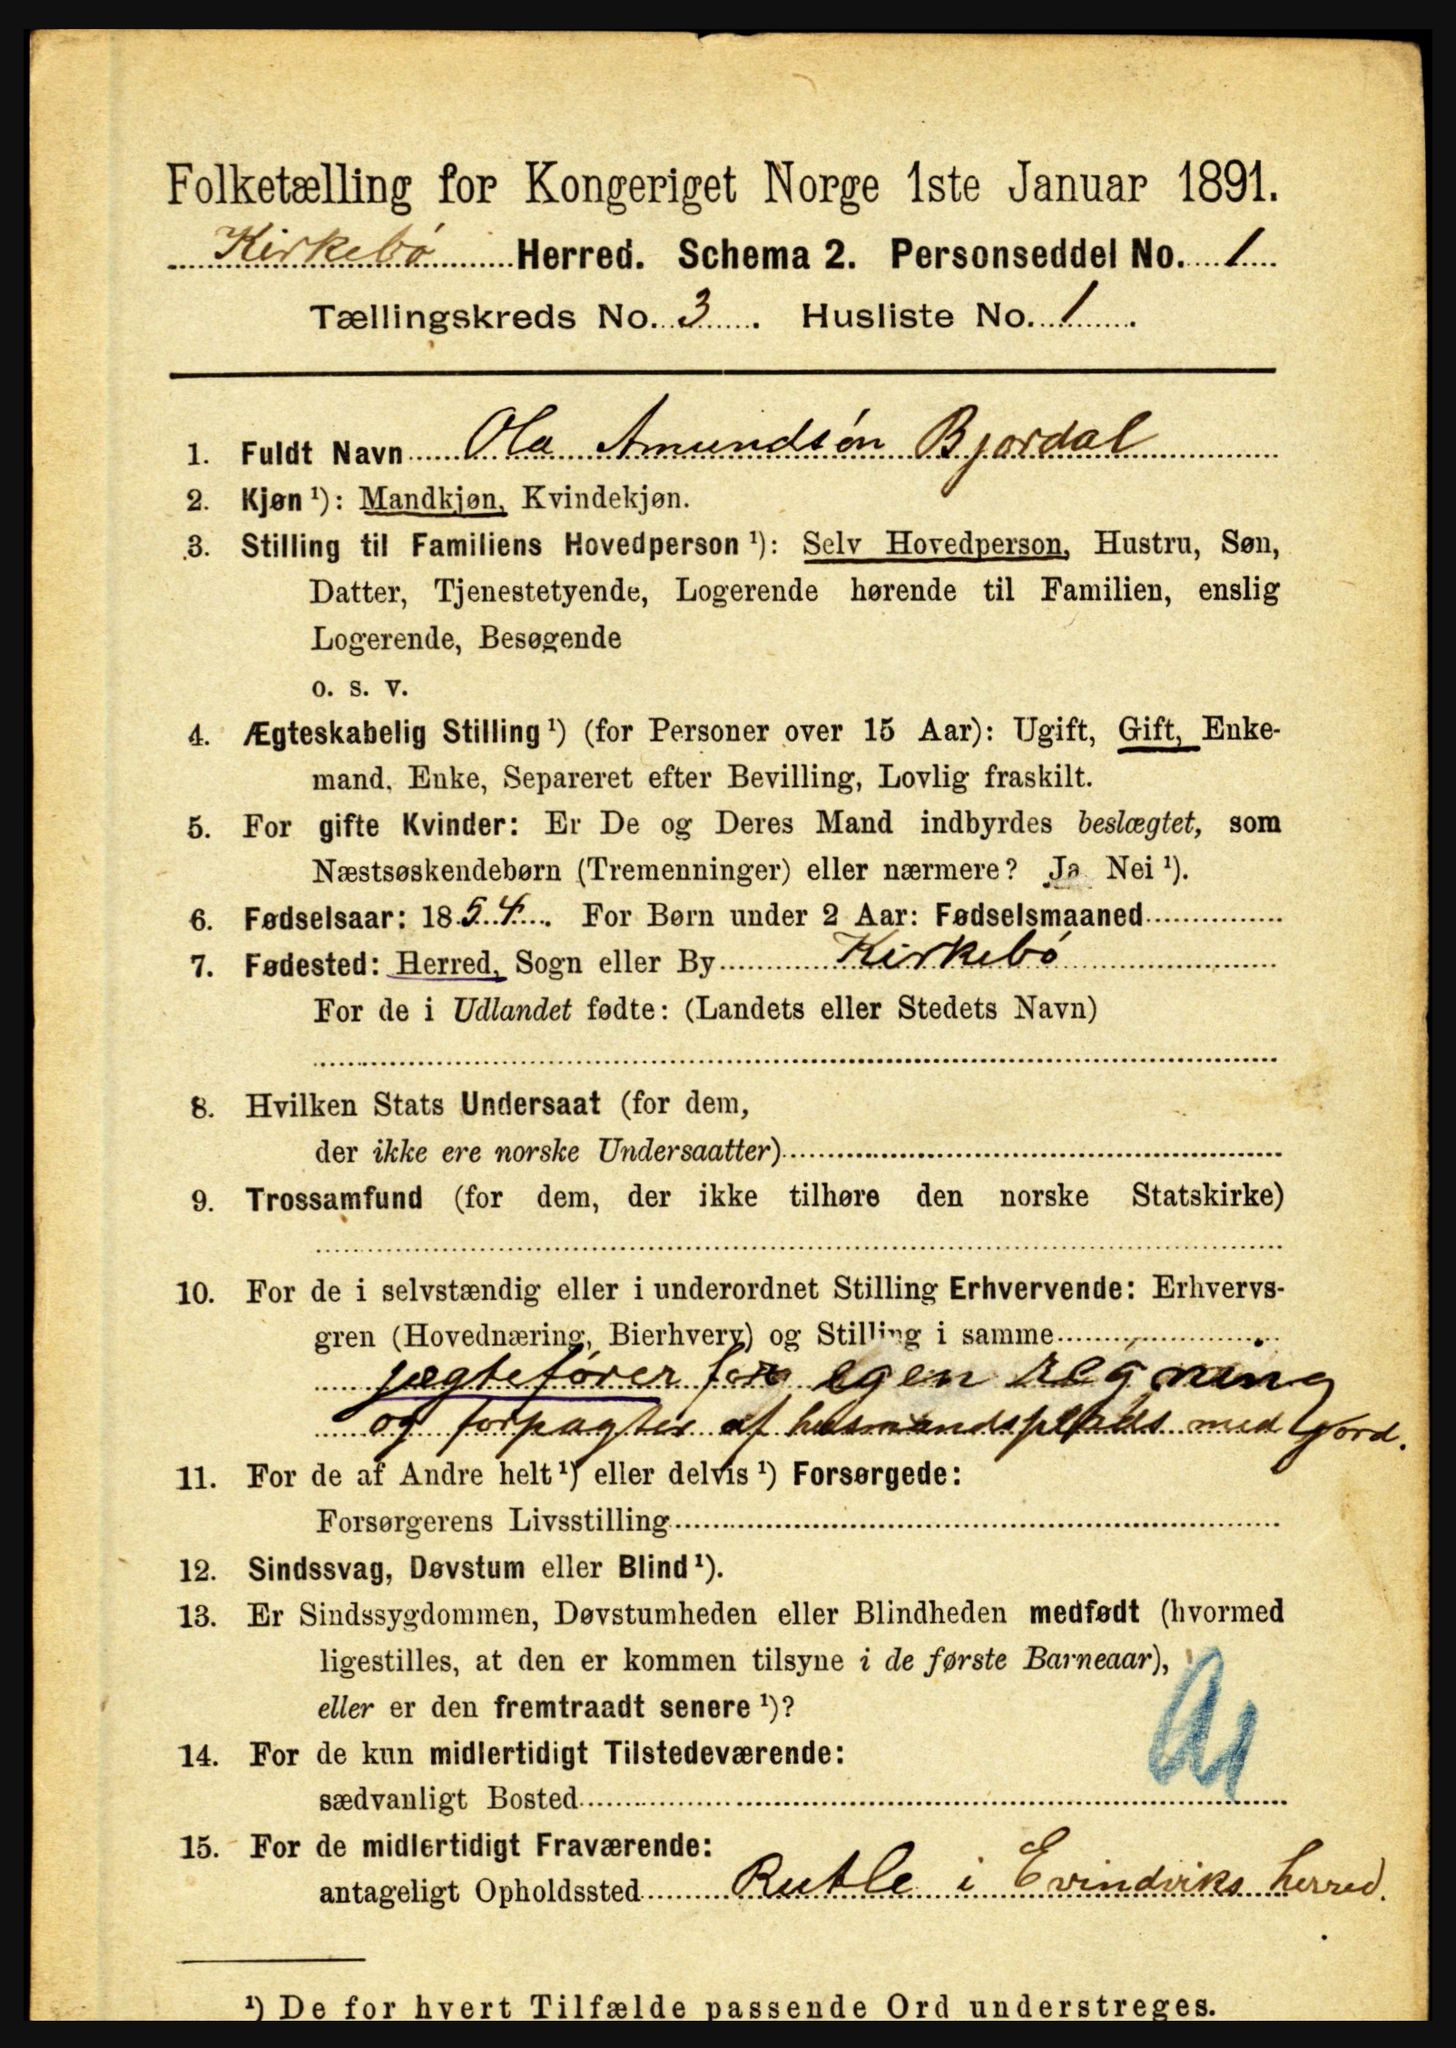 Folketælling for Kongeriget Norge 1ste Januar 1891.
Kirkebø Herred. Schema 2. Personseddel No. 1
Tællingskreds No. 3. Husliste No. 1.
1. Fuldt Navn Ola Amundsøn Bjordal
2. Kjøn ¹): Mandkjøn, Kvindekjøn.
3. Stilling til Familiens Hovedperson ¹): Selv Hovedperson, Hustru, Søn,
Datter, Tjenestetyende, Logerende hørende til Familien, enslig
Logerende, Besøgende
o. s. v.
4. Ægteskabelig Stilling ¹) (for Personer over 15 Aar): Ugift, Gift, Enke-
mand, Enke, Separeret efter Bevilling, Lovlig fraskilt.
5. For gifte Kvinder: Er De og Deres Mand indbyrdes beslægtet, som
Næstsøskendebørn (Tremenninger) eller nærmere? Ja Nei ¹).
6. Fødselsaar: 1854. For Børn under 2 Aar: Fødselsmaaned
7. Fødested: Herred, Sogn eller By Kirkebø
For de i Udlandet fødte: (Landets eller Stedets Navn)
8. Hvilken Stats Undersaat (for dem,
der ikke ere norske Undersaatter)
9. Trossamfund (for dem, der ikke tilhøre den norske Statskirke)
10. For de i selvstændig eller i underordnet Stilling Erhvervende: Erhvervs-
gren (Hovednæring, Bierhverv) og Stilling i samme
jægtefører for egen regning
og forpagter af husmandsplads med Jord.
11. For de af Andre helt ¹) eller delvis ¹) Forsørgede:
Forsørgerens Livsstilling
12. Sindssvag, Døvstum eller Blind ¹).
13. Er Sindssygdommen, Døvstumheden eller Blindheden medfødt (hvormed
ligestilles, at den er kommen tilsyne i de første Barneaar),
eller er den fremtraadt senere ¹)?
14. For de kun midlertidigt Tilstedeværende:
sædvanligt Bosted
15. For de midlertidigt Fraværende:
antageligt Opholdssted Rutle i Evindviks herred.
¹) De for hvert Tilfælde passende Ord understreges.